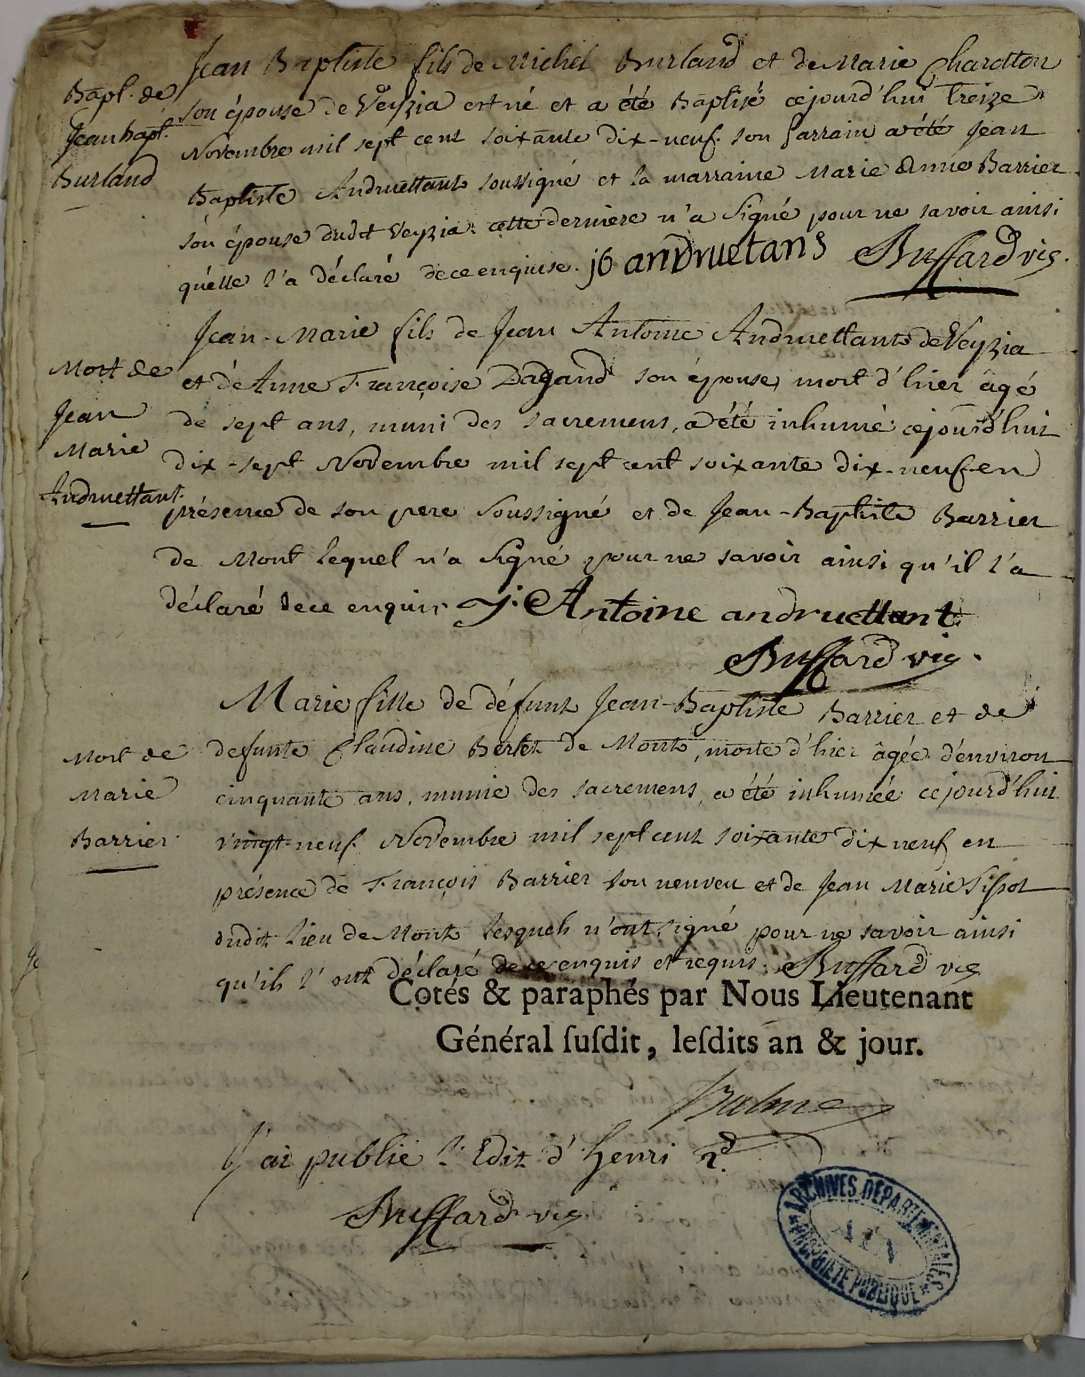 Bapt. de
Jean bapt.
Burland
Jean Baptiste fils de Michel Burland et de Marie Charotton
son épouse de Veyzia est né et a été Baptisé cejourd'hui treize
Novembre mil sept cent soixante dix-neuf. son parrain a été Jean
Baptiste Andruettants soussigné et la marraine Marie Anne Barrier
son épouse dudt Veyzia: cette derniere n'a signé pour ne savoir ainsi
qu'elle l'a déclaré de ce enquise. jb andruetans Buffard vic.
Mort de
Jean
Marie
Andruettant.
Jean-Marie fils de Jean Antoine Andruettants de Veyzia
et de Anne Françoise Dagand son épouse, mort d'hier âgé
de sept ans, muni des sacremens, a été inhumé cejourd'hui
dix-sept Novembre mil sept cent soixante dix-neuf en
présence de son pere soussigné et de Jean-Baptiste Barrier
de Mont lequel n'a signé pour ne savoir ainsi qu'il l'a
déclaré de ce enquis. j. Antoine andruettant
Buffard vic.
Mort de
Marie
Barrier.
Marie fille de défunt Jean-Baptiste Barrier et de
defunte Claudine Bertet de Mont, morte d'hier âgée d'environ
cinquante ans, munie des sacremens, a été inhumée cejourd'hui
vingt-neuf Novembre mil sept cent soixante dix neuf en
présence de François Barrier son neveu et de Jean Marie Sissot
dudit lieu de Mont lesquels n'ont signé pour ne savoir ainsi
qu'ils l'ont déclaré de ce enquis et requis. Buffard vic
Cotés & paraphés par Nous Lieutenant
Général susdit, lesdits an & jour.
J'ai publié l'Edit d'henri 2d.
Buffard vic
ARCHIVES DÉPARTEMENTALES
AIN
PROPRIÉTÉ PUBLIQUE